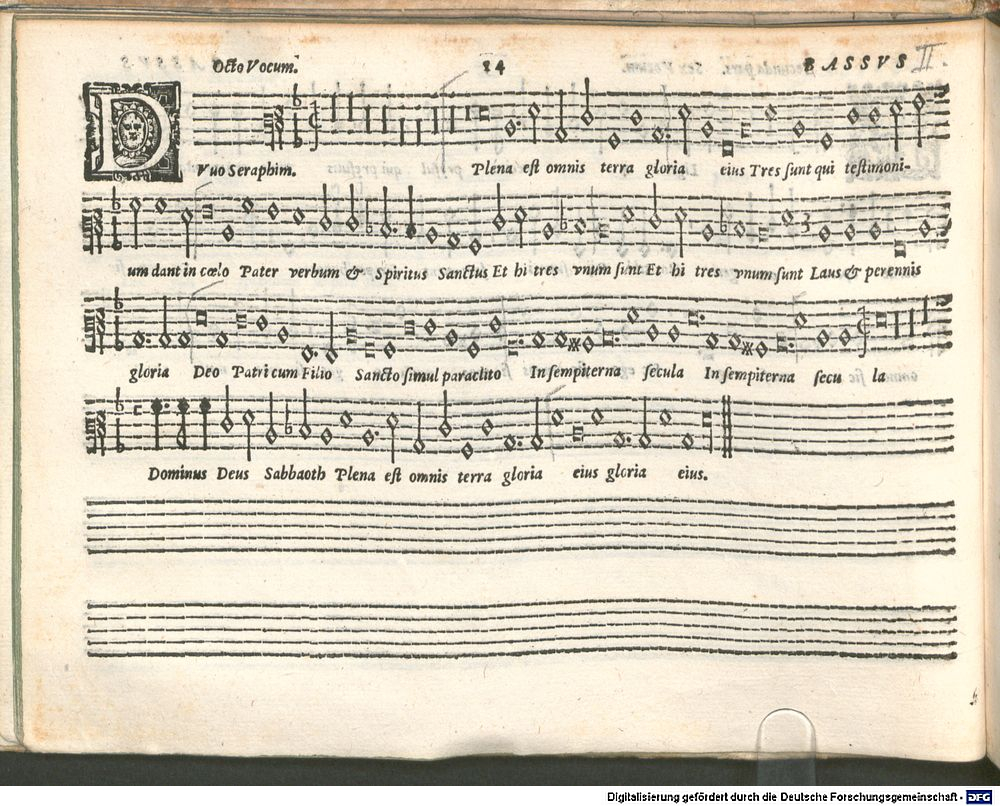 Octo Vocum. 14 BASSVS II.
DVuo Seraphim. Plena est omnis terra gloria eius Tres sunt qui testimoni-
um dant in cœlo Pater verbum & Spiritus Sanctus Et hi tres vnum sunt Et hi tres vnum sunt Laus & perennis
gloria Deo Patri cum Filio Sancto simul paraclito In sempiterna secula In sempiterna secu la
Dominus Deus Sabbaoth Plena est omnis terra gloria eius gloria eius.
Digitalisierung gefördert durch die Deutsche Forschungsgemeinschaft - DFG